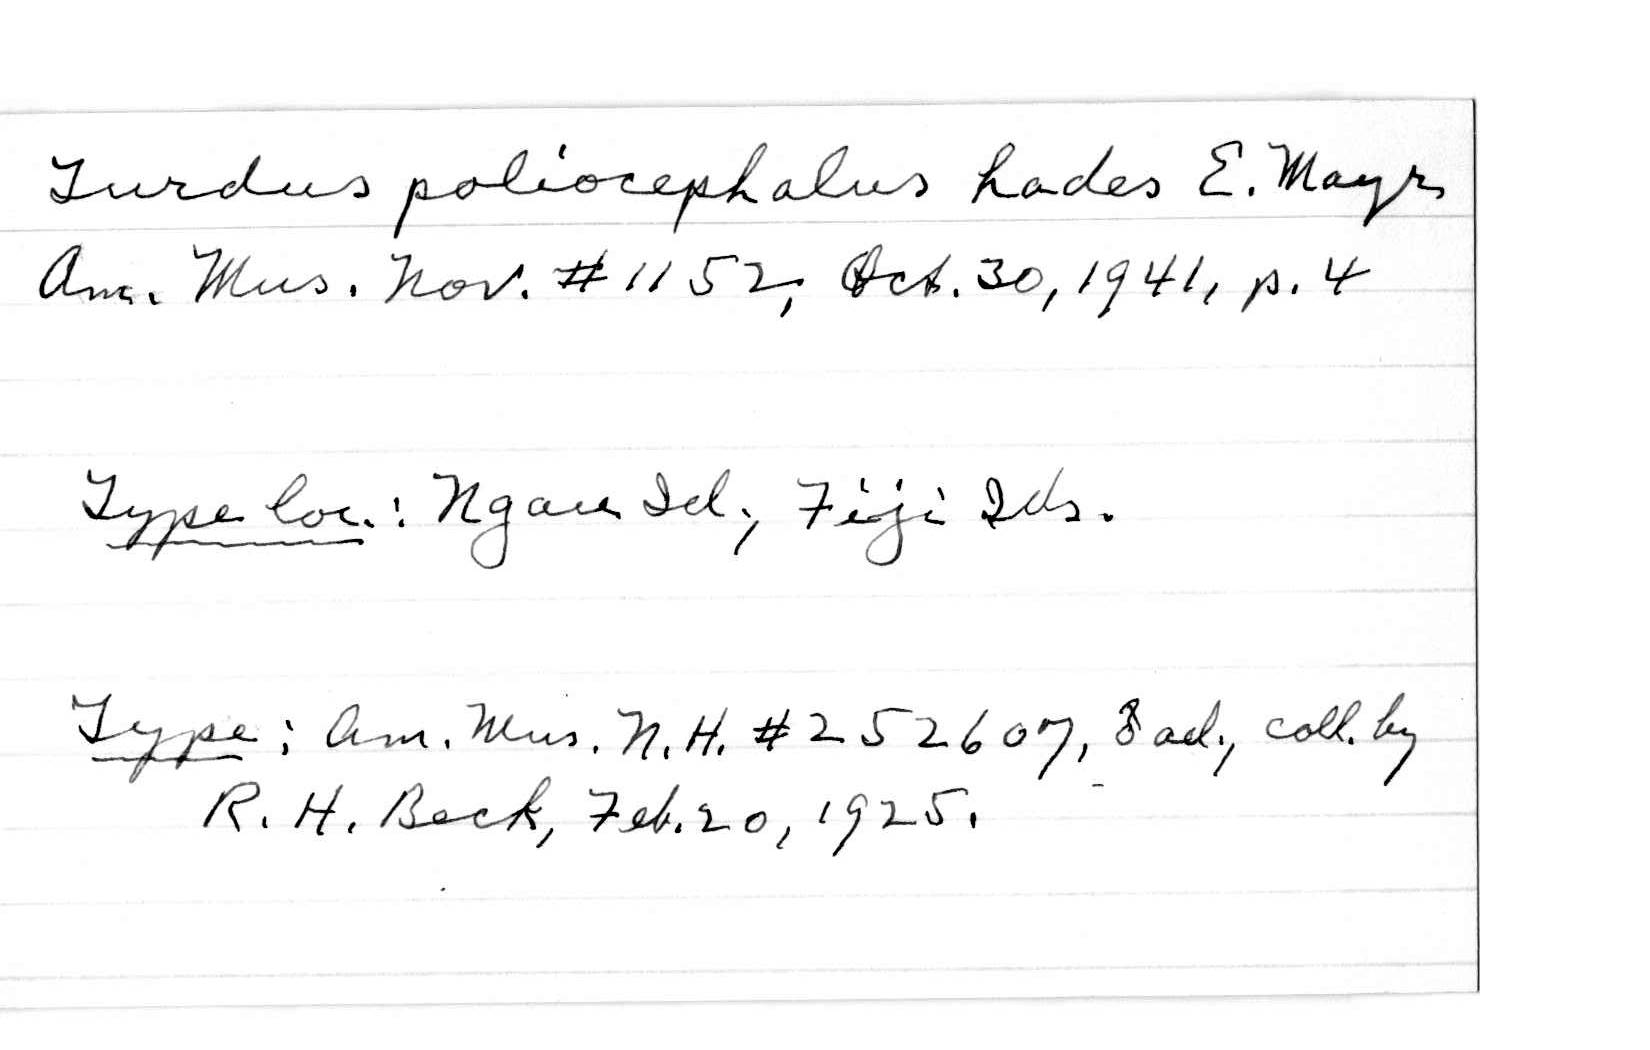 Turdus poliocephalus hades E. Mayr
Am. Mus. Nov. #1152, Oct. 30, 1941, p. 4
Type loc.: Ngau Id., Fiji Ids.
Type: Am. Mus. N.H. #252607, ♂ ad., coll. by
R. H. Beck, Feb. 20, 1925.